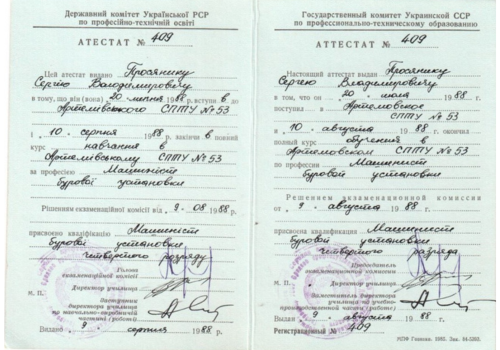 Державний комітет Української РСР
по професійно-технічній освіті
АТЕСТАТ № 409
Цей атестат видано Просянику
Сергію Володимировичу
в тому, що він (вона) 20 липня 1988 р. вступив до
Артемівського СПТУ № 53
і 10 серпня 1988 р. закінчив повний
курс навчання в
Артемівському СПТУ № 53
за професією Машиніст
бурової установки
Рішенням екзаменаційної комісії від 9. 08 1988 р.
присвоєно кваліфікацію Машиніст
бурової установки
четвертого розряду
Голова
екзаменаційної комісії
Директор училища
М. П.
Заступник
директора училища
по навчально-виробничій
частині (роботі)
Видано 9 серпня 1988 р.
Государственный комитет Украинской ССР
по профессионально-техническому образованию
АТТЕСТАТ № 409
Настоящий аттестат выдан Просянику
Сергею Владимировичу
в том, что он 20 июля 1988 г.
поступил в Артемовское
СПТУ № 53
и 10 августа 1988 г. окончил
полный курс обучения в
Артемовском СПТУ № 53
по профессии Машинист
буровой установки
Решением экзаменационной комиссии
от 9 августа 1988 г.
присвоена квалификация Машинист
буровой установки
четвертого разряда
Председатель
экзаменационной комиссии
Директор училища
М. П.
Заместитель директора
училища по учебно-
производственной части (работе)
Выдан 9 августа 1988 г.
Регистрационный № 409